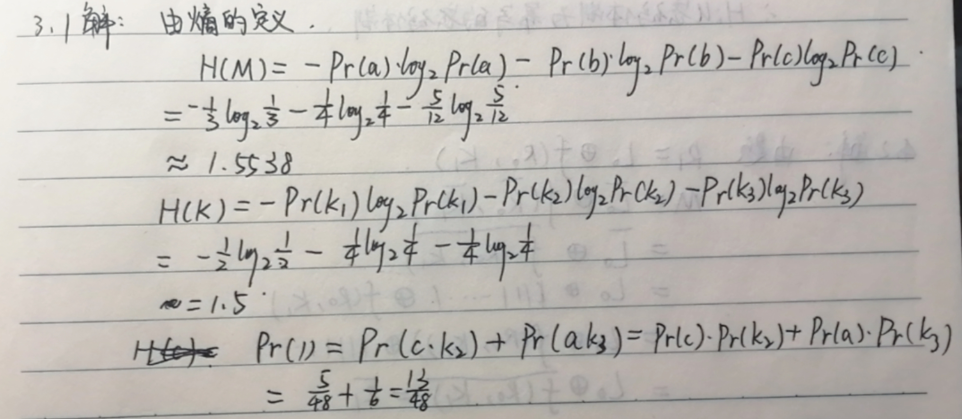 3.1 解: 由熵的定义.
H(M) = -Pr(a)·log₂Pr(a) - Pr(b)·log₂Pr(b) - Pr(c)log₂Pr(c).
= -1/3 log₂ 1/3 - 1/4 log₂ 1/4 - 5/12 log₂ 5/12
≈ 1.5538
H(K) = -Pr(k₁)log₂Pr(k₁) - Pr(k₂)log₂Pr(k₂) - Pr(k₃)log₂Pr(k₃)
= -1/2 log₂ 1/2 - 1/4 log₂ 1/4 - 1/4 log₂ 1/4
= 1.5
Pr(1) = Pr(c·k₂) + Pr(ak₃) = Pr(c)·Pr(k₂) + Pr(a)·Pr(k₃)
= 5/48 + 1/6 = 13/48